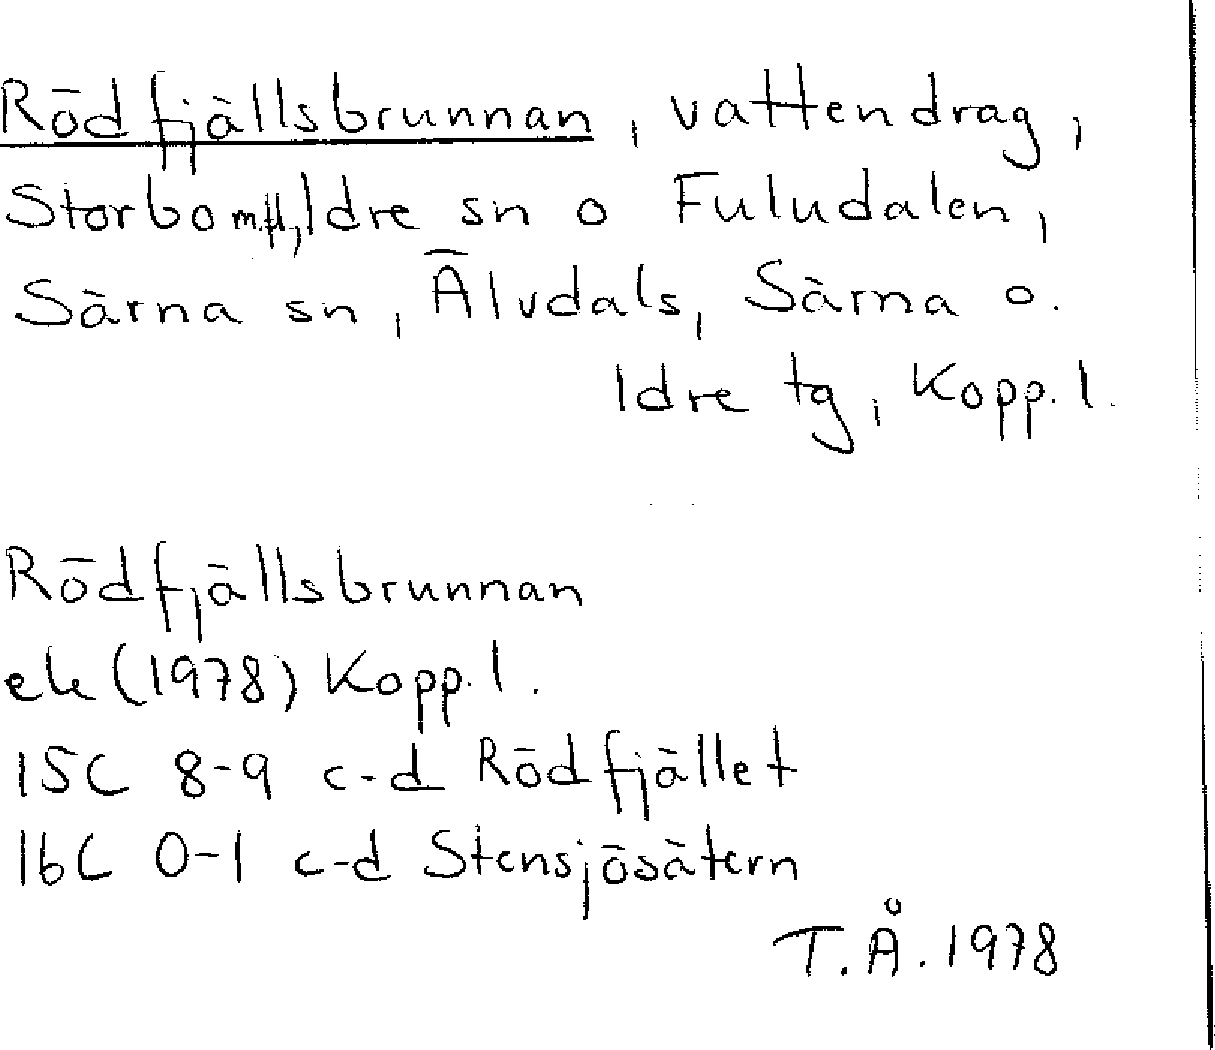 Rödfjällsbrunnan, vattendrag,
Storbo m.fl., Idre sn o Fuludalen,
Särna sn, Älvdals, Särna o.
Idre tg, Kopp. l.
Rödfjällsbrunnan
ek (1978) Kopp. l.
15C 8-9 c-d Rödfjället
16C 0-1 c-d Stensjösätern
T.Å. 1978